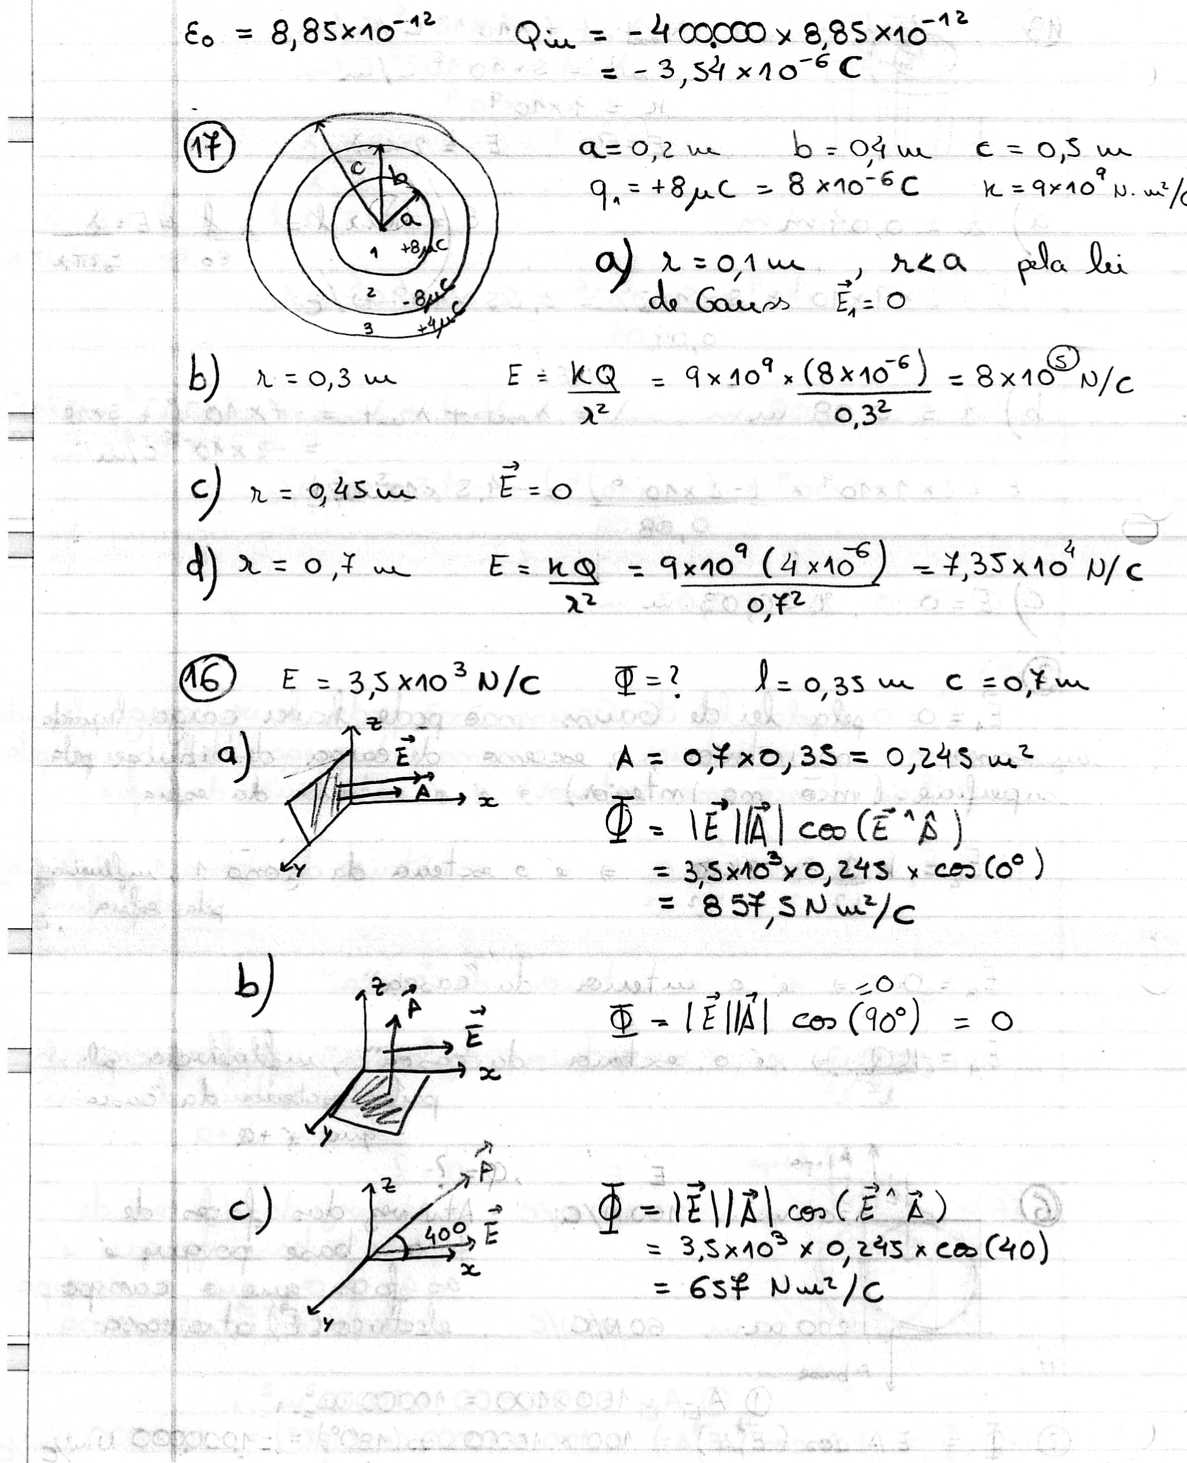 ε₀ = 8,85×10⁻¹² Qin = -400.000 × 8,85×10⁻¹²
= -3,54×10⁻⁶ C
17 a = 0,2 m b = 0,4 m c = 0,5 m
q₁ = +8μC = 8×10⁻⁶C k = 9×10⁹ N.m²/C
c b a
1 +8μC
2 -8μC
3 +4μC
a) r = 0,1 m , r<a pela lei
de Gauss E⃗₁ = 0
b) r = 0,3 m E = kQ/r² = 9×10⁹ × (8×10⁻⁶)/0,3² = 8×10⁵ N/C
c) r = 0,45 m E⃗ = 0
d) r = 0,7 m E = kQ/r² = 9×10⁹ (4×10⁻⁶)/0,7² = 7,35×10⁴ N/C
16 E = 3,5×10³ N/C Φ = ? l = 0,35 m c = 0,7 m
a) z E⃗ A⃗ x y A = 0,7×0,35 = 0,245 m²
Φ = |E⃗||A⃗| cos(E⃗^A⃗)
= 3,5×10³ × 0,245 × cos(0°)
= 857,5 N m²/C
b) z A⃗ E⃗ x y Φ = |E⃗||A⃗| cos(90°) = 0
=0
c) z A⃗ 40° E⃗ x y Φ = |E⃗||A⃗| cos(E⃗^A⃗)
= 3,5×10³ × 0,245 × cos(40)
= 657 Nm²/C